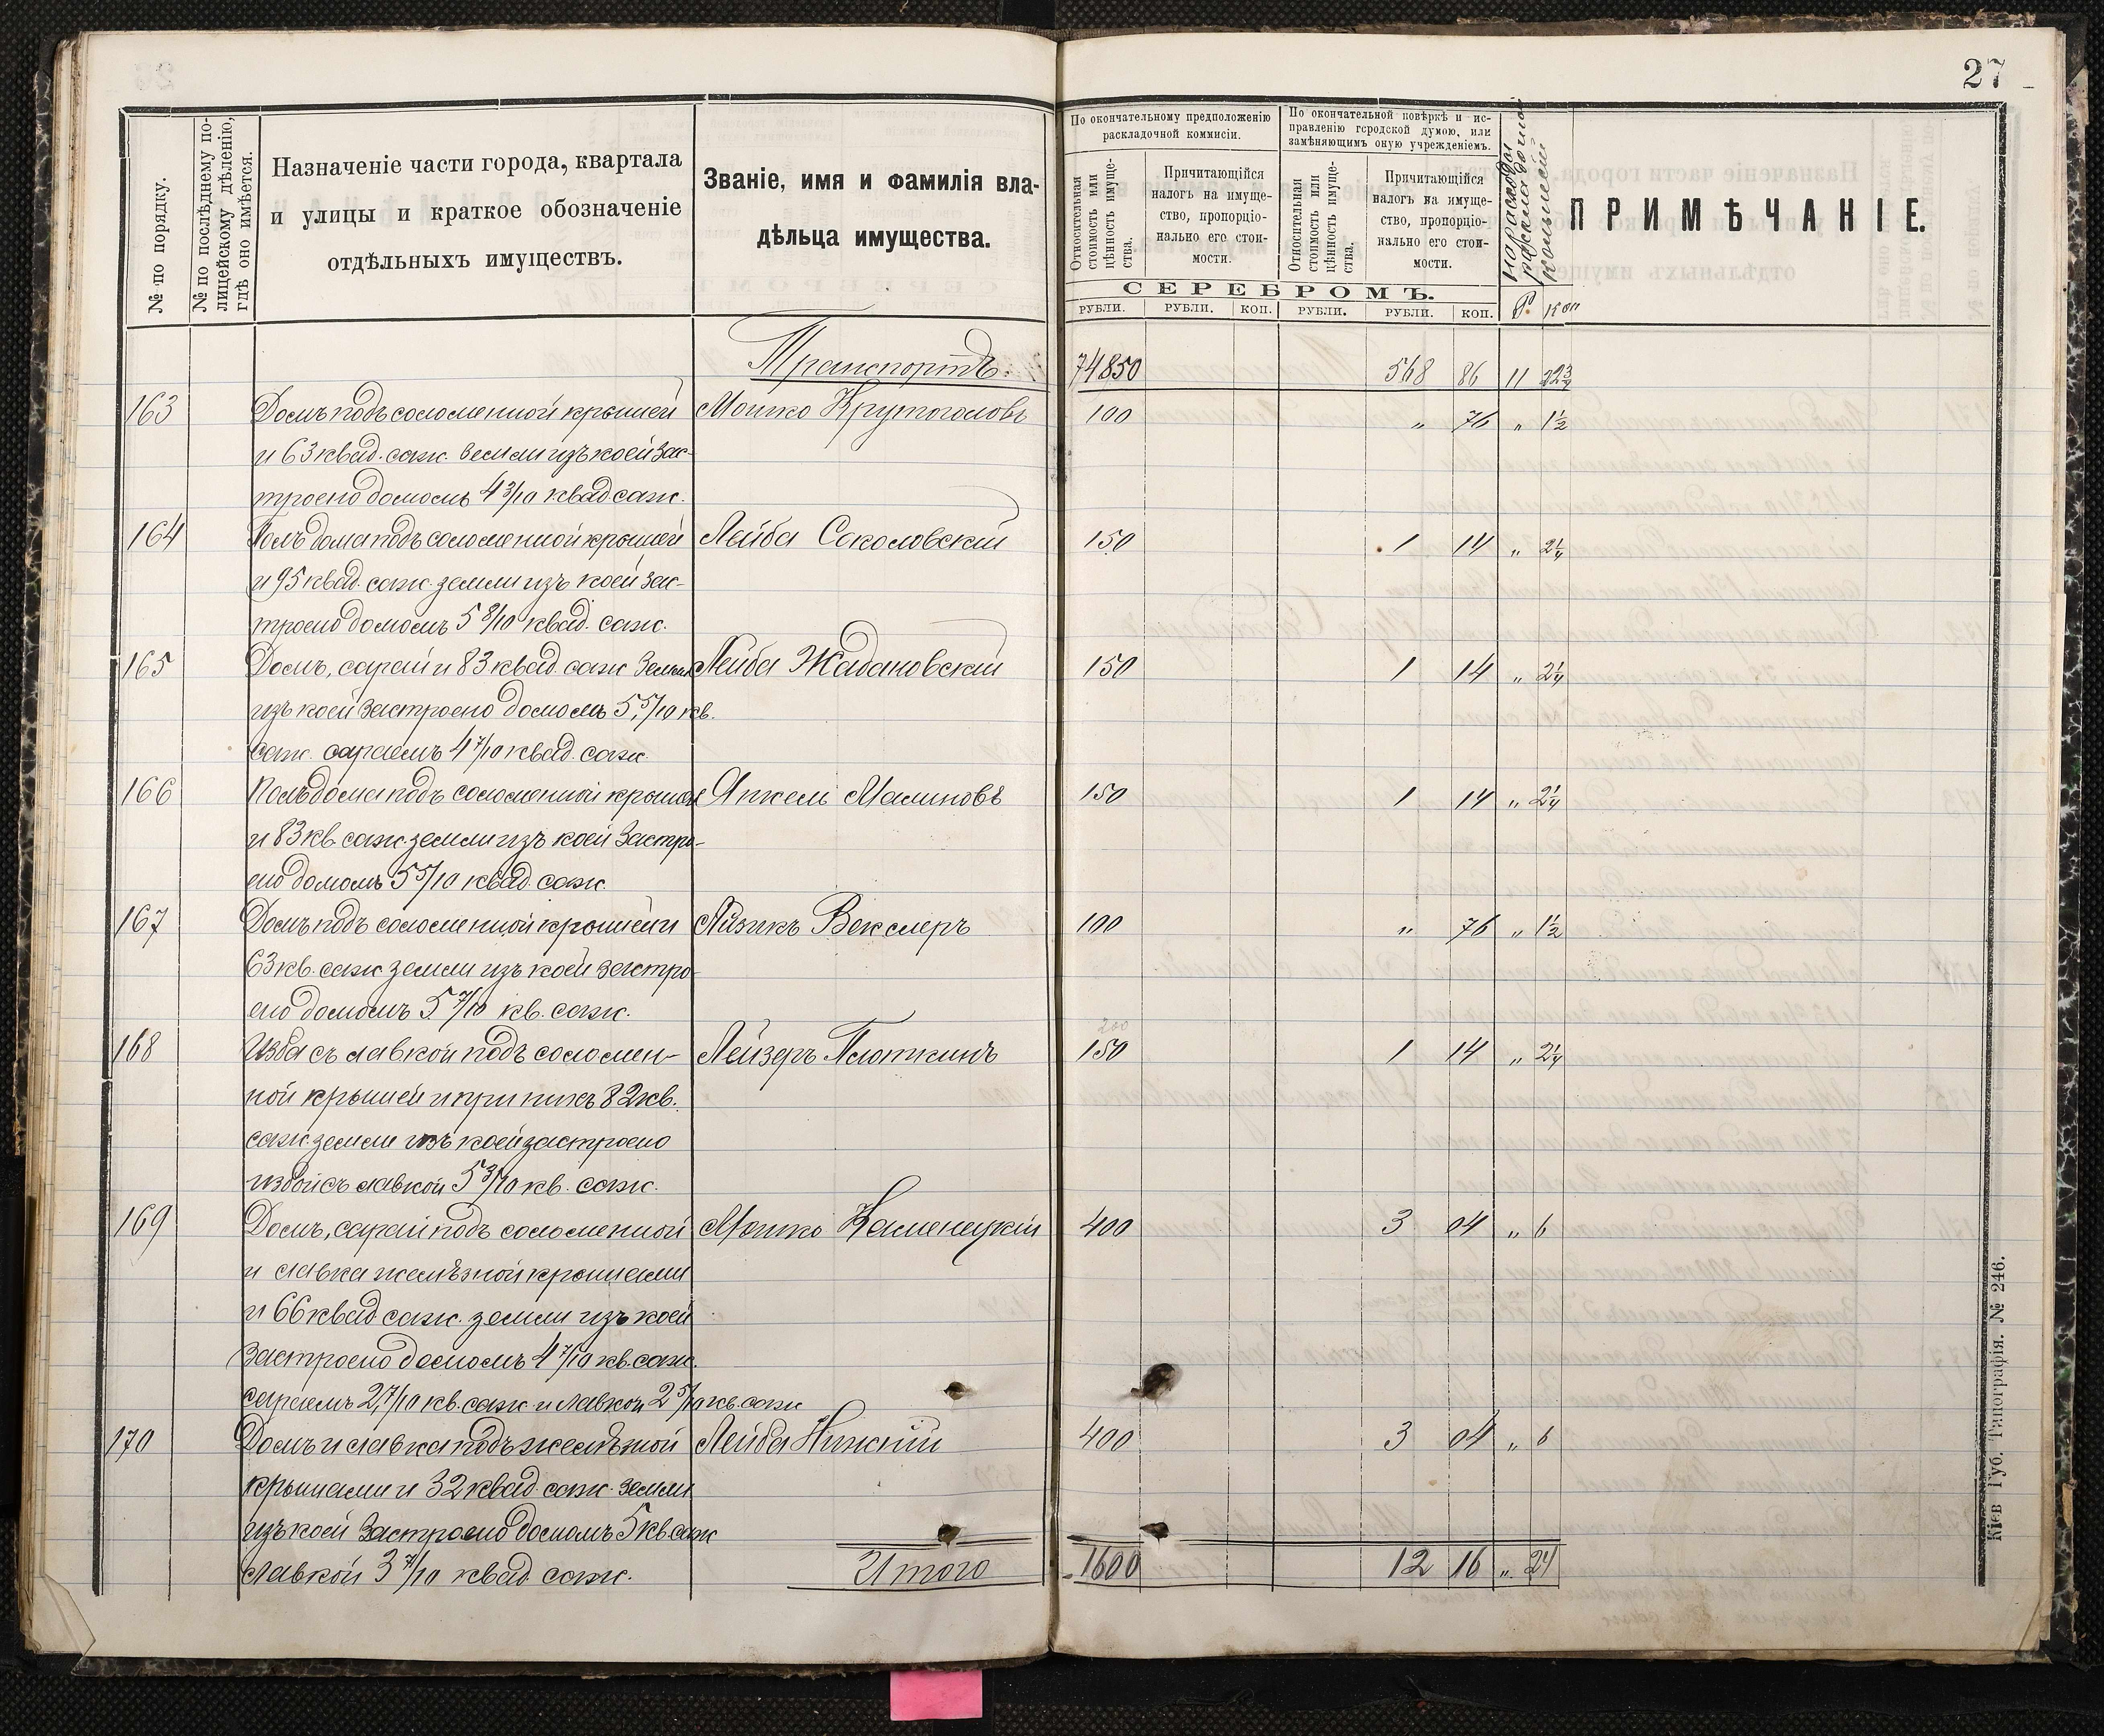 27
№ по порядку.
№ по послѣднему по-
лицейскому дѣленію,
гдѣ оно имѣется.
Назначеніе части города, квартала
и улицы и краткое обозначеніе
отдѣльныхъ имуществъ.
Званіе, имя и фамилія вла-
дѣльца имущества.
По окончательному предположенію
раскладочной коммисіи.
Относительная
стоимость или
цѣнность имуще-
ства.
Причитающійся
налогъ на имуще-
ство, пропорціо-
нально его стои-
мости.
По окончательной повѣркѣ и ис-
правленію городской думою, или
замѣняющимъ оную учрежденіемъ.
Относительная
стоимость или
цѣнность имуще-
ства.
Причитающійся
налогъ на имуще-
ство, пропорціо-
нально его стои-
мости.
На расходы
раскладочной
комисіи
ПРИМѢЧАНІЕ.
СЕРЕБРОМЪ.
РУБЛИ. РУБЛИ. КОП. РУБЛИ. РУБЛИ. КОП. Р. Коп
Транспортъ 74850 568 86 11
163 Домъ подъ соломенной крышей Мошко Крутоголовъ 100 " 76 " 1½
и 63 квад. саж. земли изъ коей зас-
троено домомъ 4 3/10 квад саж.
164 Полъ дома подъ соломенной крышей Лейба Соколовскій 150 1 14 " 2¼
и 95 квад. саж. земли изъ коей зас-
троено домомъ 5 8/10 квад. саж.
165 Домъ, сарай и 83 квад. саж земли Лейба Жадановскій 150 1 14 " 2¼
изъ коей застроено домомъ 5,5/10 кв.
саж. сараемъ 4 7/10 квад. саж.
166 Полъ дома подъ соломенной крышей Янкель Малиновъ 150 1 14 " 2¼
и 83 кв. саж. земли изъ коей застро-
ено домомъ 5 5/10 квад. саж.
167 Домъ подъ соломенной крышей и Айзикъ Векслеръ 100 " 76 " 1½
63 кв. саж земли изъ коей застро-
ено домомъ 5 7/10 кв. саж.
200
168 Изба съ лавкой подъ соломен- Лейзеръ Плоткинъ 150 1 14 " 2¼
ной крышей и при нихъ 82 кв.
саж земли изъ коей застроено
избой съ лавкой 5 3/10 кв. саж.
169 Домъ, сарай подъ соломенной Мошко Каменецкій 400 3 04 " 6
и лавка желѣзной крышами
и 66 квад саж. земли изъ коей
застроено домомъ 4 7/10 кв. саж.
сараемъ 2,7/10 кв. саж и лавкой 2 5/10 кв. саж
170 Домъ и лавка подъ желѣзной Лейба Нижній 400 3 04 " 6
крышами и 32 квад. саж. земли
изъ коей застроено домомъ 5 кв. саж
лавкой 3 7/10 квад саж. Итого 1600 12 16 " 24
Кіев Губ. Типографія. № 246.